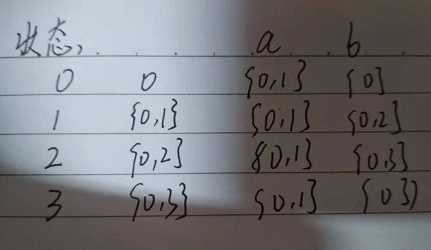 状态, a b
0 0 {0,1} {0}
1 {0,1} {0,1} {0,2}
2 {0,2} {0,1} {0,3}
3 {0,3} {0,1} {0}